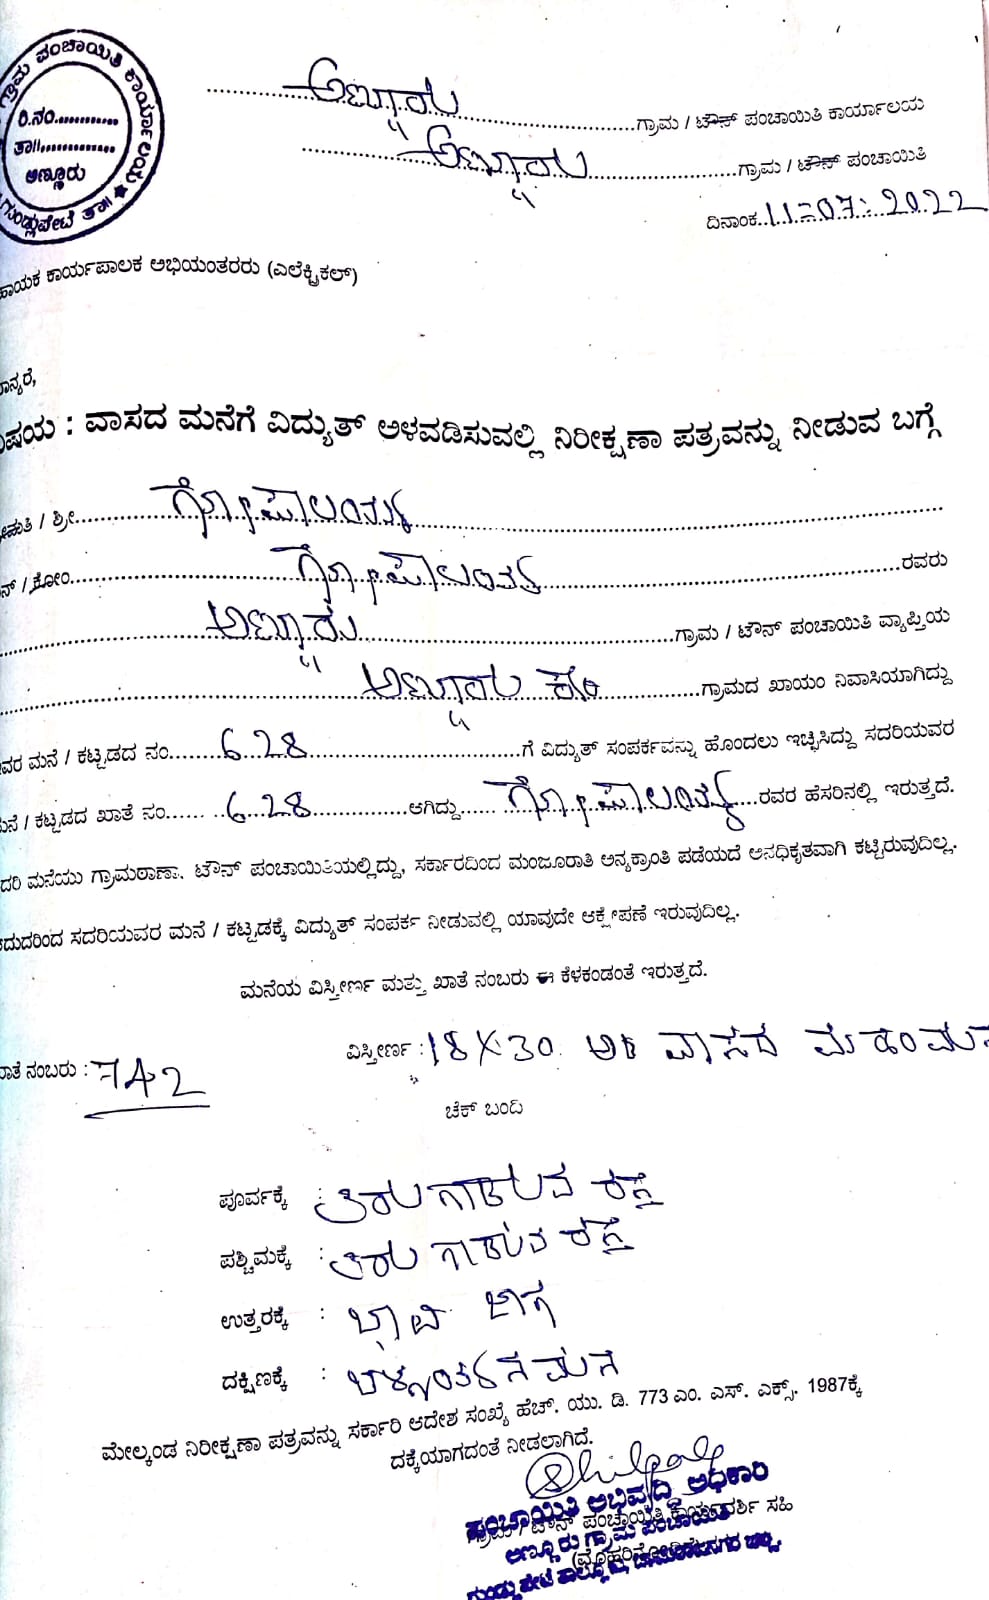 ಗ್ರಾಮ ಪಂಚಾಯಿತಿ ಕಾರ್ಯಾಲಯ
ರಿ.ನಂ............
ತಾ||..............
ಅಣ್ಣೂರು
ಗುಂಡ್ಲುಪೇಟೆ ತಾ||
ಅಣ್ಣೂರು ಗ್ರಾಮ / ಟೌನ್ ಪಂಚಾಯಿತಿ ಕಾರ್ಯಾಲಯ
ಅಣ್ಣೂರು ಗ್ರಾಮ / ಟೌನ್ ಪಂಚಾಯಿತಿ
ದಿನಾಂಕ..11-07-2022
ಹಾಯಕ ಕಾರ್ಯಪಾಲಕ ಅಭಿಯಂತರರು (ಎಲೆಕ್ಟ್ರಿಕಲ್)
ಾನ್ಯರೆ,
ವಿಷಯ : ವಾಸದ ಮನೆಗೆ ವಿದ್ಯುತ್ ಅಳವಡಿಸುವಲ್ಲಿ ನಿರೀಕ್ಷಣಾ ಪತ್ರವನ್ನು ನೀಡುವ ಬಗ್ಗೆ
ೀಮತಿ / ಶ್ರೀ ಗೋಪಾಲಯ್ಯ
ನ್ / ಕೋಂ. ಗೋಪಾಲಯ್ಯ ರವರು
ಅಣ್ಣೂರು ಗ್ರಾಮ / ಟೌನ್ ಪಂಚಾಯಿತಿ ವ್ಯಾಪ್ತಿಯ
ಅಣ್ಣೂರು ಗ್ರಾಮದ ಖಾಯಂ ನಿವಾಸಿಯಾಗಿದ್ದು
ವರ ಮನೆ / ಕಟ್ಟಡದ ನಂ. 628 ಗೆ ವಿದ್ಯುತ್ ಸಂಪರ್ಕವನ್ನು ಹೊಂದಲು ಇಚ್ಛಿಸಿದ್ದು ಸದರಿಯವರ
ಮನೆ / ಕಟ್ಟಡದ ಖಾತೆ ನಂ. 628 ಆಗಿದ್ದು ಗೋಪಾಲಯ್ಯ ರವರ ಹೆಸರಿನಲ್ಲಿ ಇರುತ್ತದೆ.
ದರಿ ಮನೆಯು ಗ್ರಾಮಠಾಣಾ. ಟೌನ್ ಪಂಚಾಯಿತಿಯಲ್ಲಿದ್ದು, ಸರ್ಕಾರದಿಂದ ಮಂಜೂರಾತಿ ಅನ್ಯಕ್ರಾಂತಿ ಪಡೆಯದೆ ಅನಧಿಕೃತವಾಗಿ ಕಟ್ಟಿರುವುದಿಲ್ಲ.
ಆದುದರಿಂದ ಸದರಿಯವರ ಮನೆ / ಕಟ್ಟಡಕ್ಕೆ ವಿದ್ಯುತ್ ಸಂಪರ್ಕ ನೀಡುವಲ್ಲಿ ಯಾವುದೇ ಆಕ್ಷೇಪಣೆ ಇರುವುದಿಲ್ಲ.
ಮನೆಯ ವಿಸ್ತೀರ್ಣ ಮತ್ತು ಖಾತೆ ನಂಬರು ಈ ಕೆಳಕಂಡಂತೆ ಇರುತ್ತದೆ.
ಾತೆ ನಂಬರು : 742 ವಿಸ್ತೀರ್ಣ : 18X30 ಅಡಿ ವಾಸದ
ಚೆಕ್ ಬಂದಿ
ಪೂರ್ವಕ್ಕೆ : ತಿರುಗಾಡುವ ರಸ್ತೆ
ಪಶ್ಚಿಮಕ್ಕೆ : ತಿರುಗಾಡುವ ರಸ್ತೆ
ಉತ್ತರಕ್ಕೆ : ಖಾಲಿ ಜಾಗ
ದಕ್ಷಿಣಕ್ಕೆ : ಮನೆ
ಮೇಲ್ಕಂಡ ನಿರೀಕ್ಷಣಾ ಪತ್ರವನ್ನು ಸರ್ಕಾರಿ ಆದೇಶ ಸಂಖ್ಯೆ ಹೆಚ್. ಯು. ಡಿ. 773 ಎಂ. ಎಸ್. ಎಕ್ಸ್. 1987ಕ್ಕೆ
ದಕ್ಕೆಯಾಗದಂತೆ ನೀಡಲಾಗಿದೆ.
ಪಂಚಾಯಿತಿ ಅಭಿವೃದ್ಧಿ ಅಧಿಕಾರಿ
ಗ್ರಾಮ / ಟೌನ್ ಪಂಚಾಯಿತಿ ಕಾರ್ಯದರ್ಶಿ ಸಹಿ
ಅಣ್ಣೂರು ಗ್ರಾಮ ಪಂಚಾಯಿತಿ
ಗುಂಡ್ಲುಪೇಟೆ ತಾಲ್ಲೂಕು, ಚಾಮರಾಜನಗರ ಜಿಲ್ಲೆ.